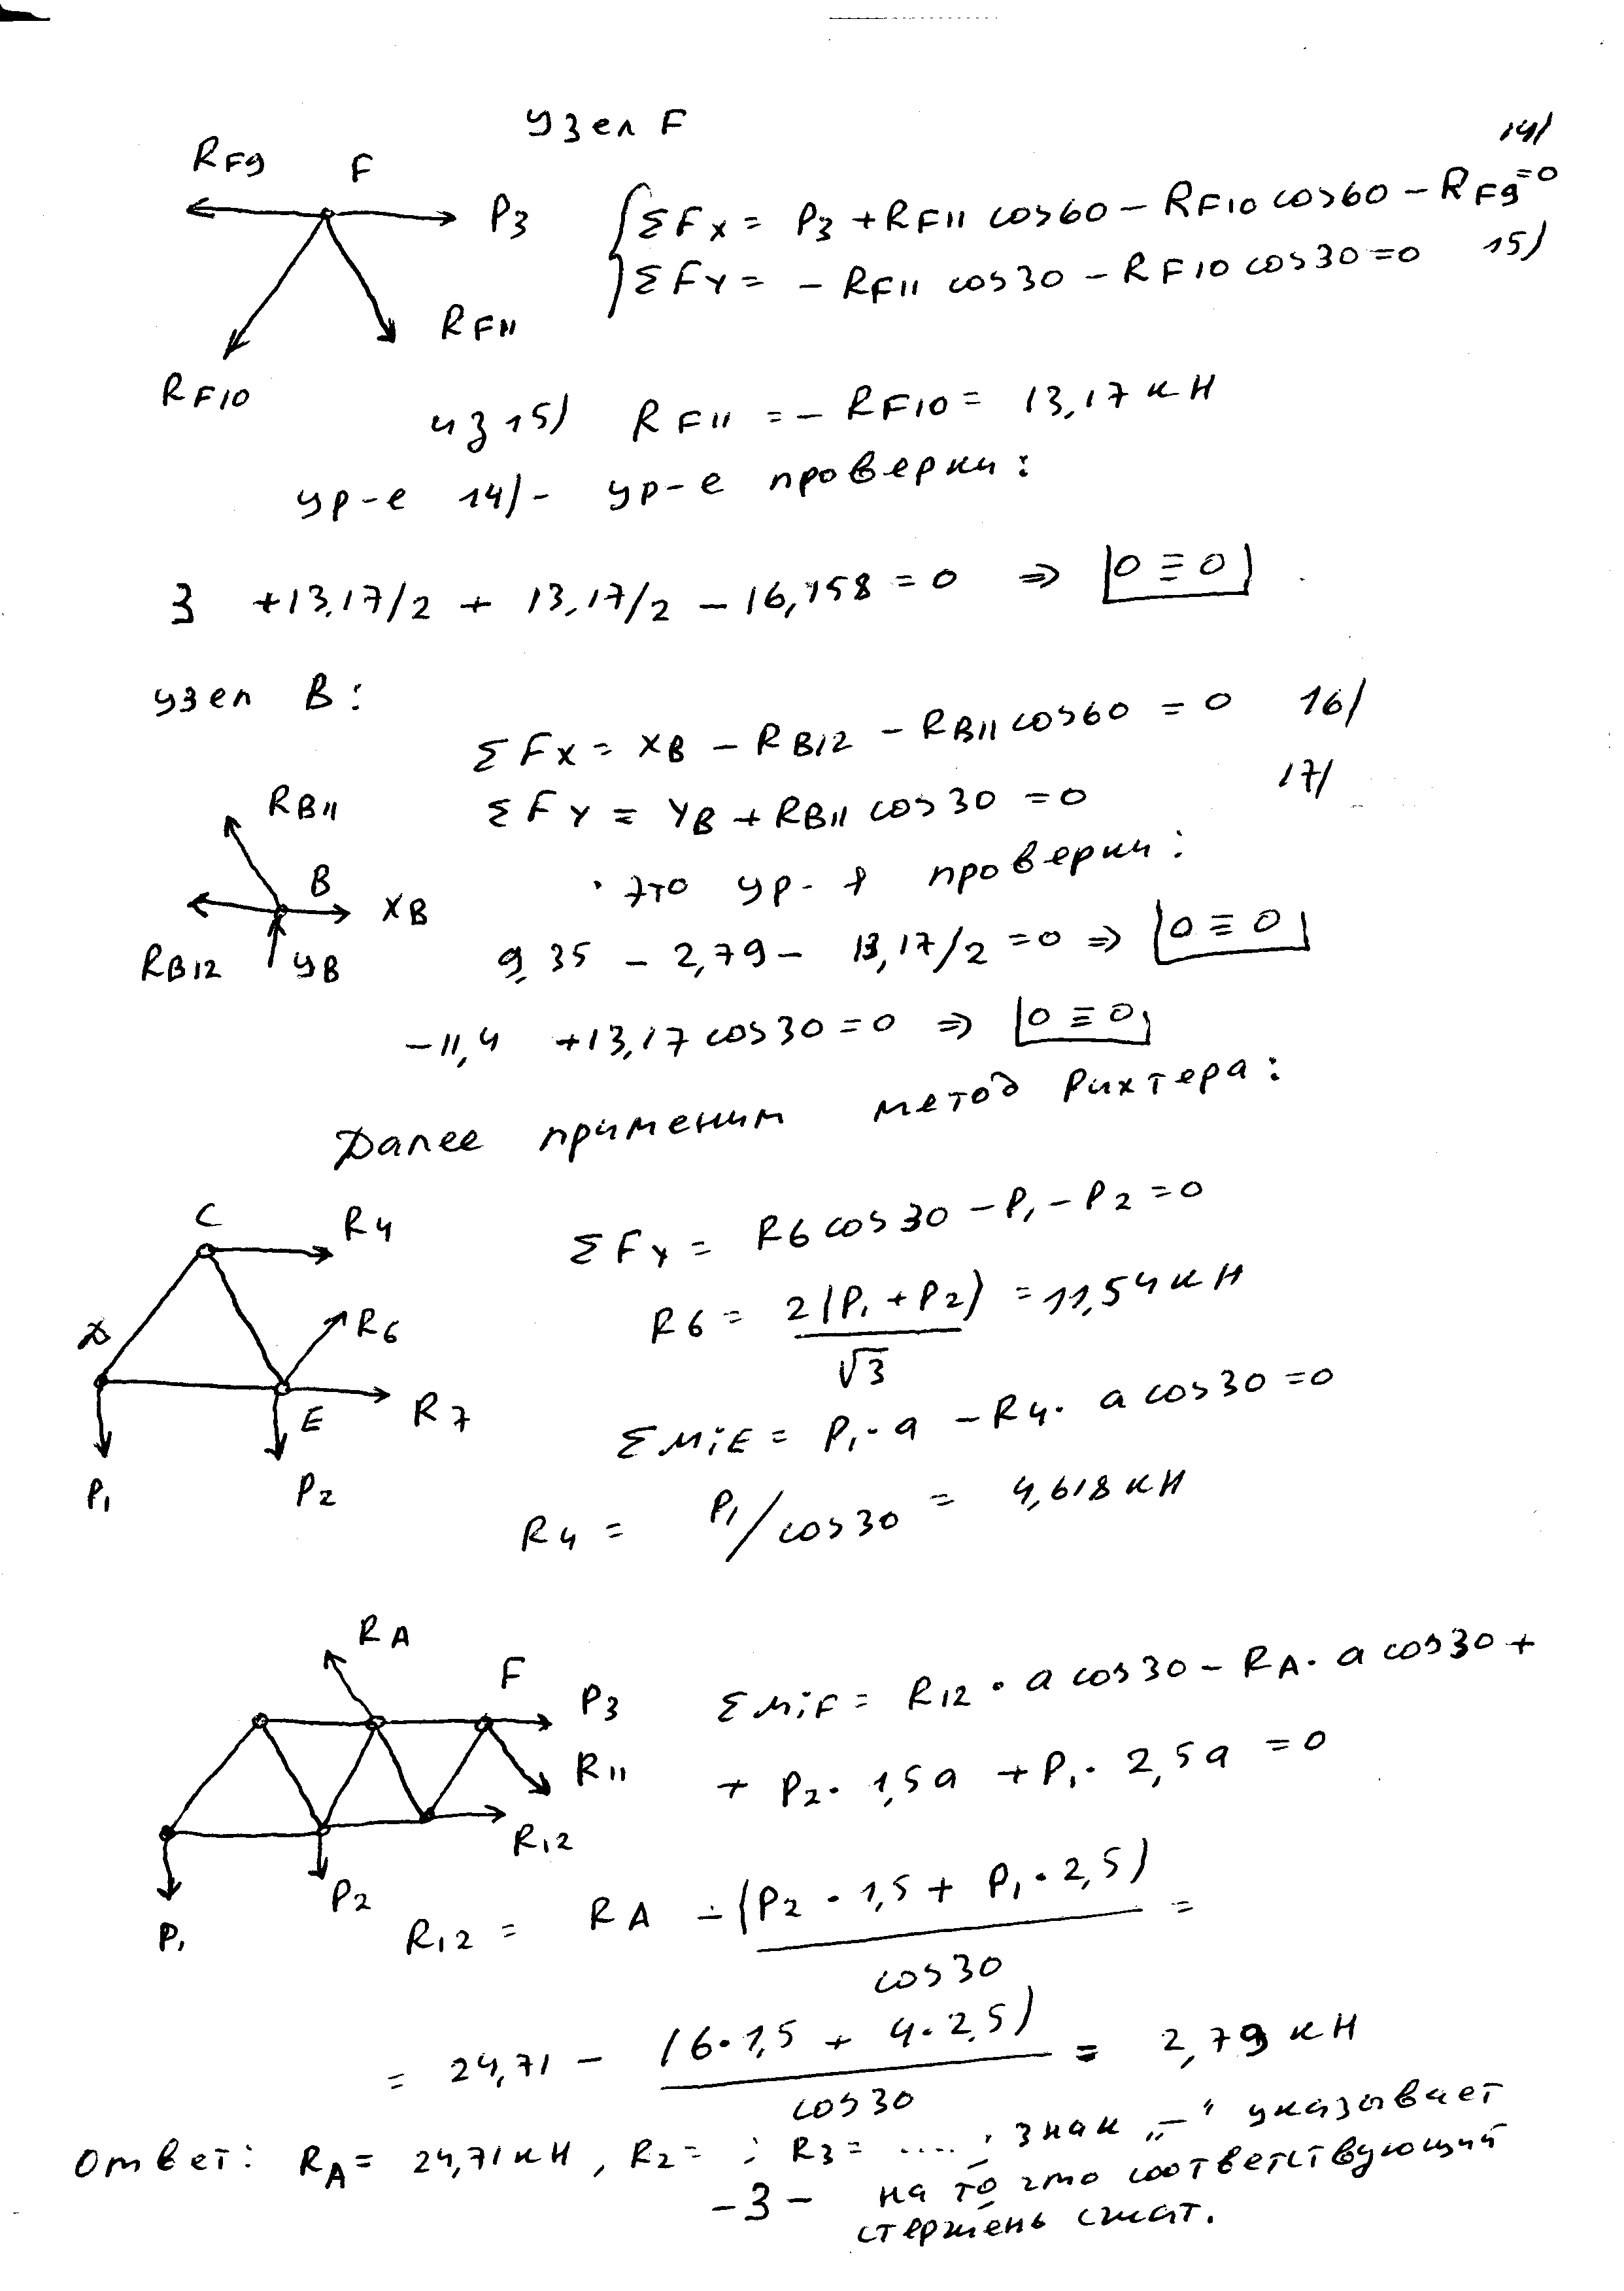 узел F
14)
RF9
F
P3
ΣFx = P3 + RF11 cos60 - RF10 cos60 - RF9 = 0
ΣFY = - RF11 cos30 - RF10 cos30 = 0 15)
RF11
RF10
из 15) RF11 = - RF10 = 13,17 кН
ур-е 14) - ур-е проверки:
3 + 13,17/2 + 13,17/2 - 16,158 = 0 ⇒ 0 ≡ 0
узел B:
ΣFx = XB - RB12 - RB11 cos60 = 0 16)
ΣFY = YB + RB11 cos30 = 0 17)
RB11
B
XB
RB12
YB
это ур-я проверки:
9,35 - 2,79 - 13,17/2 = 0 ⇒ 0 ≡ 0
-11,4 + 13,17 cos30 = 0 ⇒ 0 ≡ 0
Далее применим метод Рихтера:
C
R4
ΣFY = R6 cos30 - P1 - P2 = 0
D
R6
R6 = 2(P1 + P2)/√3 = 11,54 кН
E
R7
ΣMiE = P1·a - R4·a cos30 = 0
P1
P2
R4 = P1/cos30 = 4,618 кН
RA
F
P3
ΣMiF = R12 · a cos30 - RA · a cos30 +
R11
+ P2 · 1,5a + P1 · 2,5a = 0
R12
P2
P1
R12 = RA - (P2 · 1,5 + P1 · 2,5)/cos30 =
= 24,71 - (6·1,5 + 4·2,5)/cos30 = 2,79 кН
Ответ: RA = 24,71 кН, R2 = ; R3 = ...., знак „-“ указывает
-3- на то что соответствующий
стержень сжат.